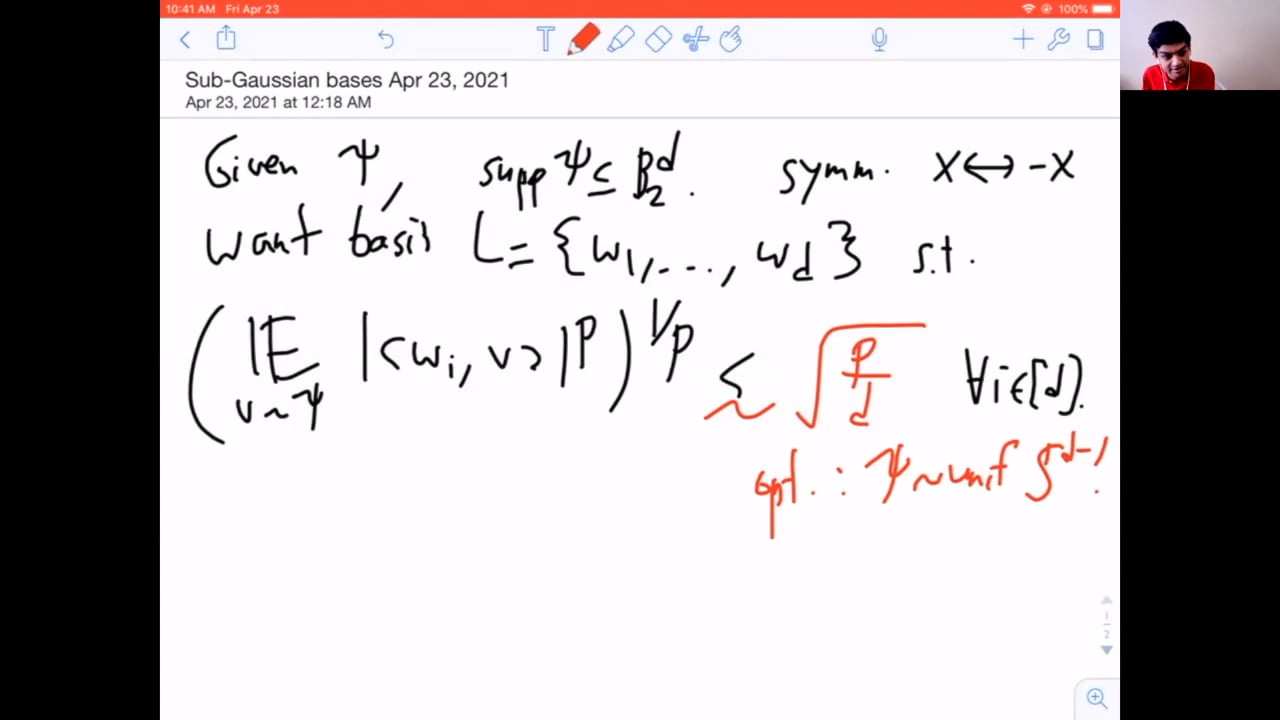 10:41 AM Fri Apr 23 100%
Sub-Gaussian bases Apr 23, 2021
Apr 23, 2021 at 12:18 AM
Given Ψ, supp Ψ ⊆ B₂ᵈ. symm. X ↔ -X
want basis L = {w₁, ..., w_d} s.t.
(𝔼_{v∼Ψ} |<wᵢ, v>|ᵖ)^{1/p} ≲ √(p/d) ∀i∈[d].
opt. : Ψ ∼ unif S^{d-1}.
1
2